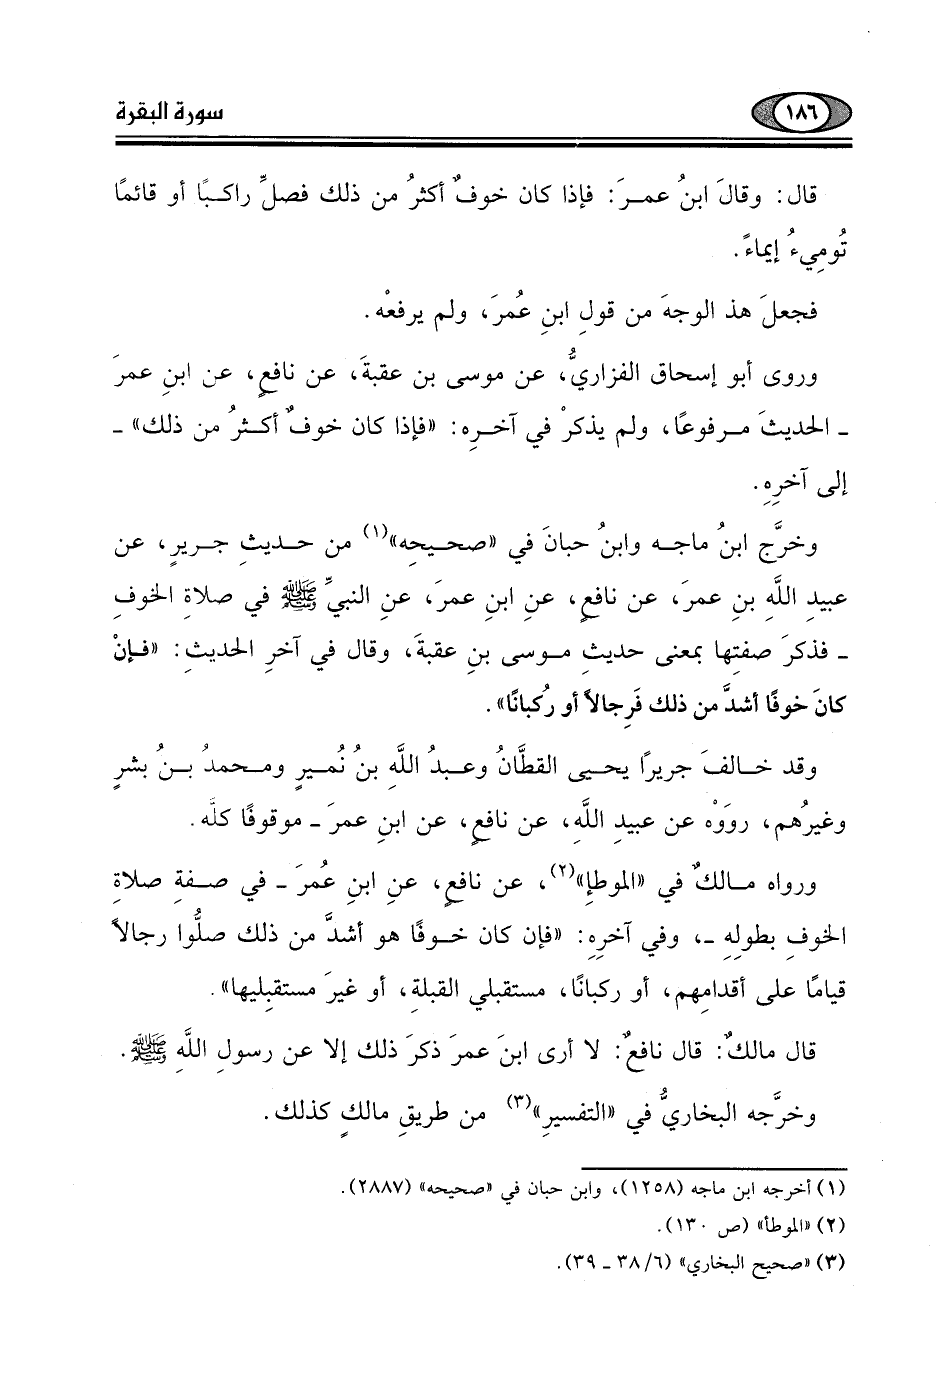 ١٨٦ سورة البقرة
قال: وقالَ ابنُ عمـرَ: فإذا كان خوفٌ أكثرُ من ذلك فصلِّ راكـبًا أو قائمًا
تُومِيءُ إيماءً.
فجعلَ هذ الوجهَ من قولِ ابنِ عُمرَ، ولم يرفعْه.
وروى أبو إسحاق الفزاريُّ، عن موسى بن عقبةَ، عن نافعٍ، عن ابنِ عمرَ
ـ الحديثَ مـرفوعًا، ولم يذكرْ في آخـرِه: «فإذا كان خوفٌ أكـثرُ من ذلك» ـ
إلى آخرِهِ.
وخرَّج ابنُ ماجـه وابنُ حبانَ في «صحـيحِه»(١) من حـديثِ جـريرٍ، عن
عبيدِ اللَّهِ بنِ عمرَ، عن نافعٍ، عنِ ابنِ عمرَ، عنِ النبيِّ ﷺ في صلاةِ الخوفِ
ـ فذكرَ صفتَها بمعنى حديثِ مـوسى بنِ عقبةَ، وقال في آخرِ الحديثِ: «فـإنْ
كانَ خوفًا أشدَّ من ذلك فَرِجالاً أو رُكبانًا».
وقد خـالفَ جريرًا يحـيى القطَّانُ وعـبدُ اللَّهِ بنُ نُميرٍ ومـحمدُ بـنُ بشرٍ
وغيرُهم، روَوْه عن عبيدِ اللَّهِ، عن نافعٍ، عن ابنِ عمرَ ـ موقوفًا كلَّه.
ورواه مـالكٌ في «الموطإ»(٢)، عن نافعٍ، عنِ ابنِ عُمرَ ـ في صـفةِ صلاةِ
الخوفِ بطولِهِ ـ، وفي آخرِهِ: «فإن كان خـوفًا هو أشدَّ من ذلك صلُّوا رجالاً
قيامًا على أقدامِهم، أو ركبانًا، مستقبلي القبلةِ، أو غيرَ مستقبليها».
قال مالكٌ: قال نافعٌ: لا أرى ابنَ عمرَ ذكرَ ذلك إلا عن رسولِ اللَّهِ ﷺ.
وخرَّجه البخاريُّ في «التفسيرِ»(٣) من طريقِ مالكٍ كذلك.
(١) أخرجه ابن ماجه (١٢٥٨)، وابن حبان في «صحيحه» (٢٨٨٧).
(٢) «الموطأ» (ص ١٣٠).
(٣) «صحيح البخاري» (٦/ ٣٨ ـ ٣٩).